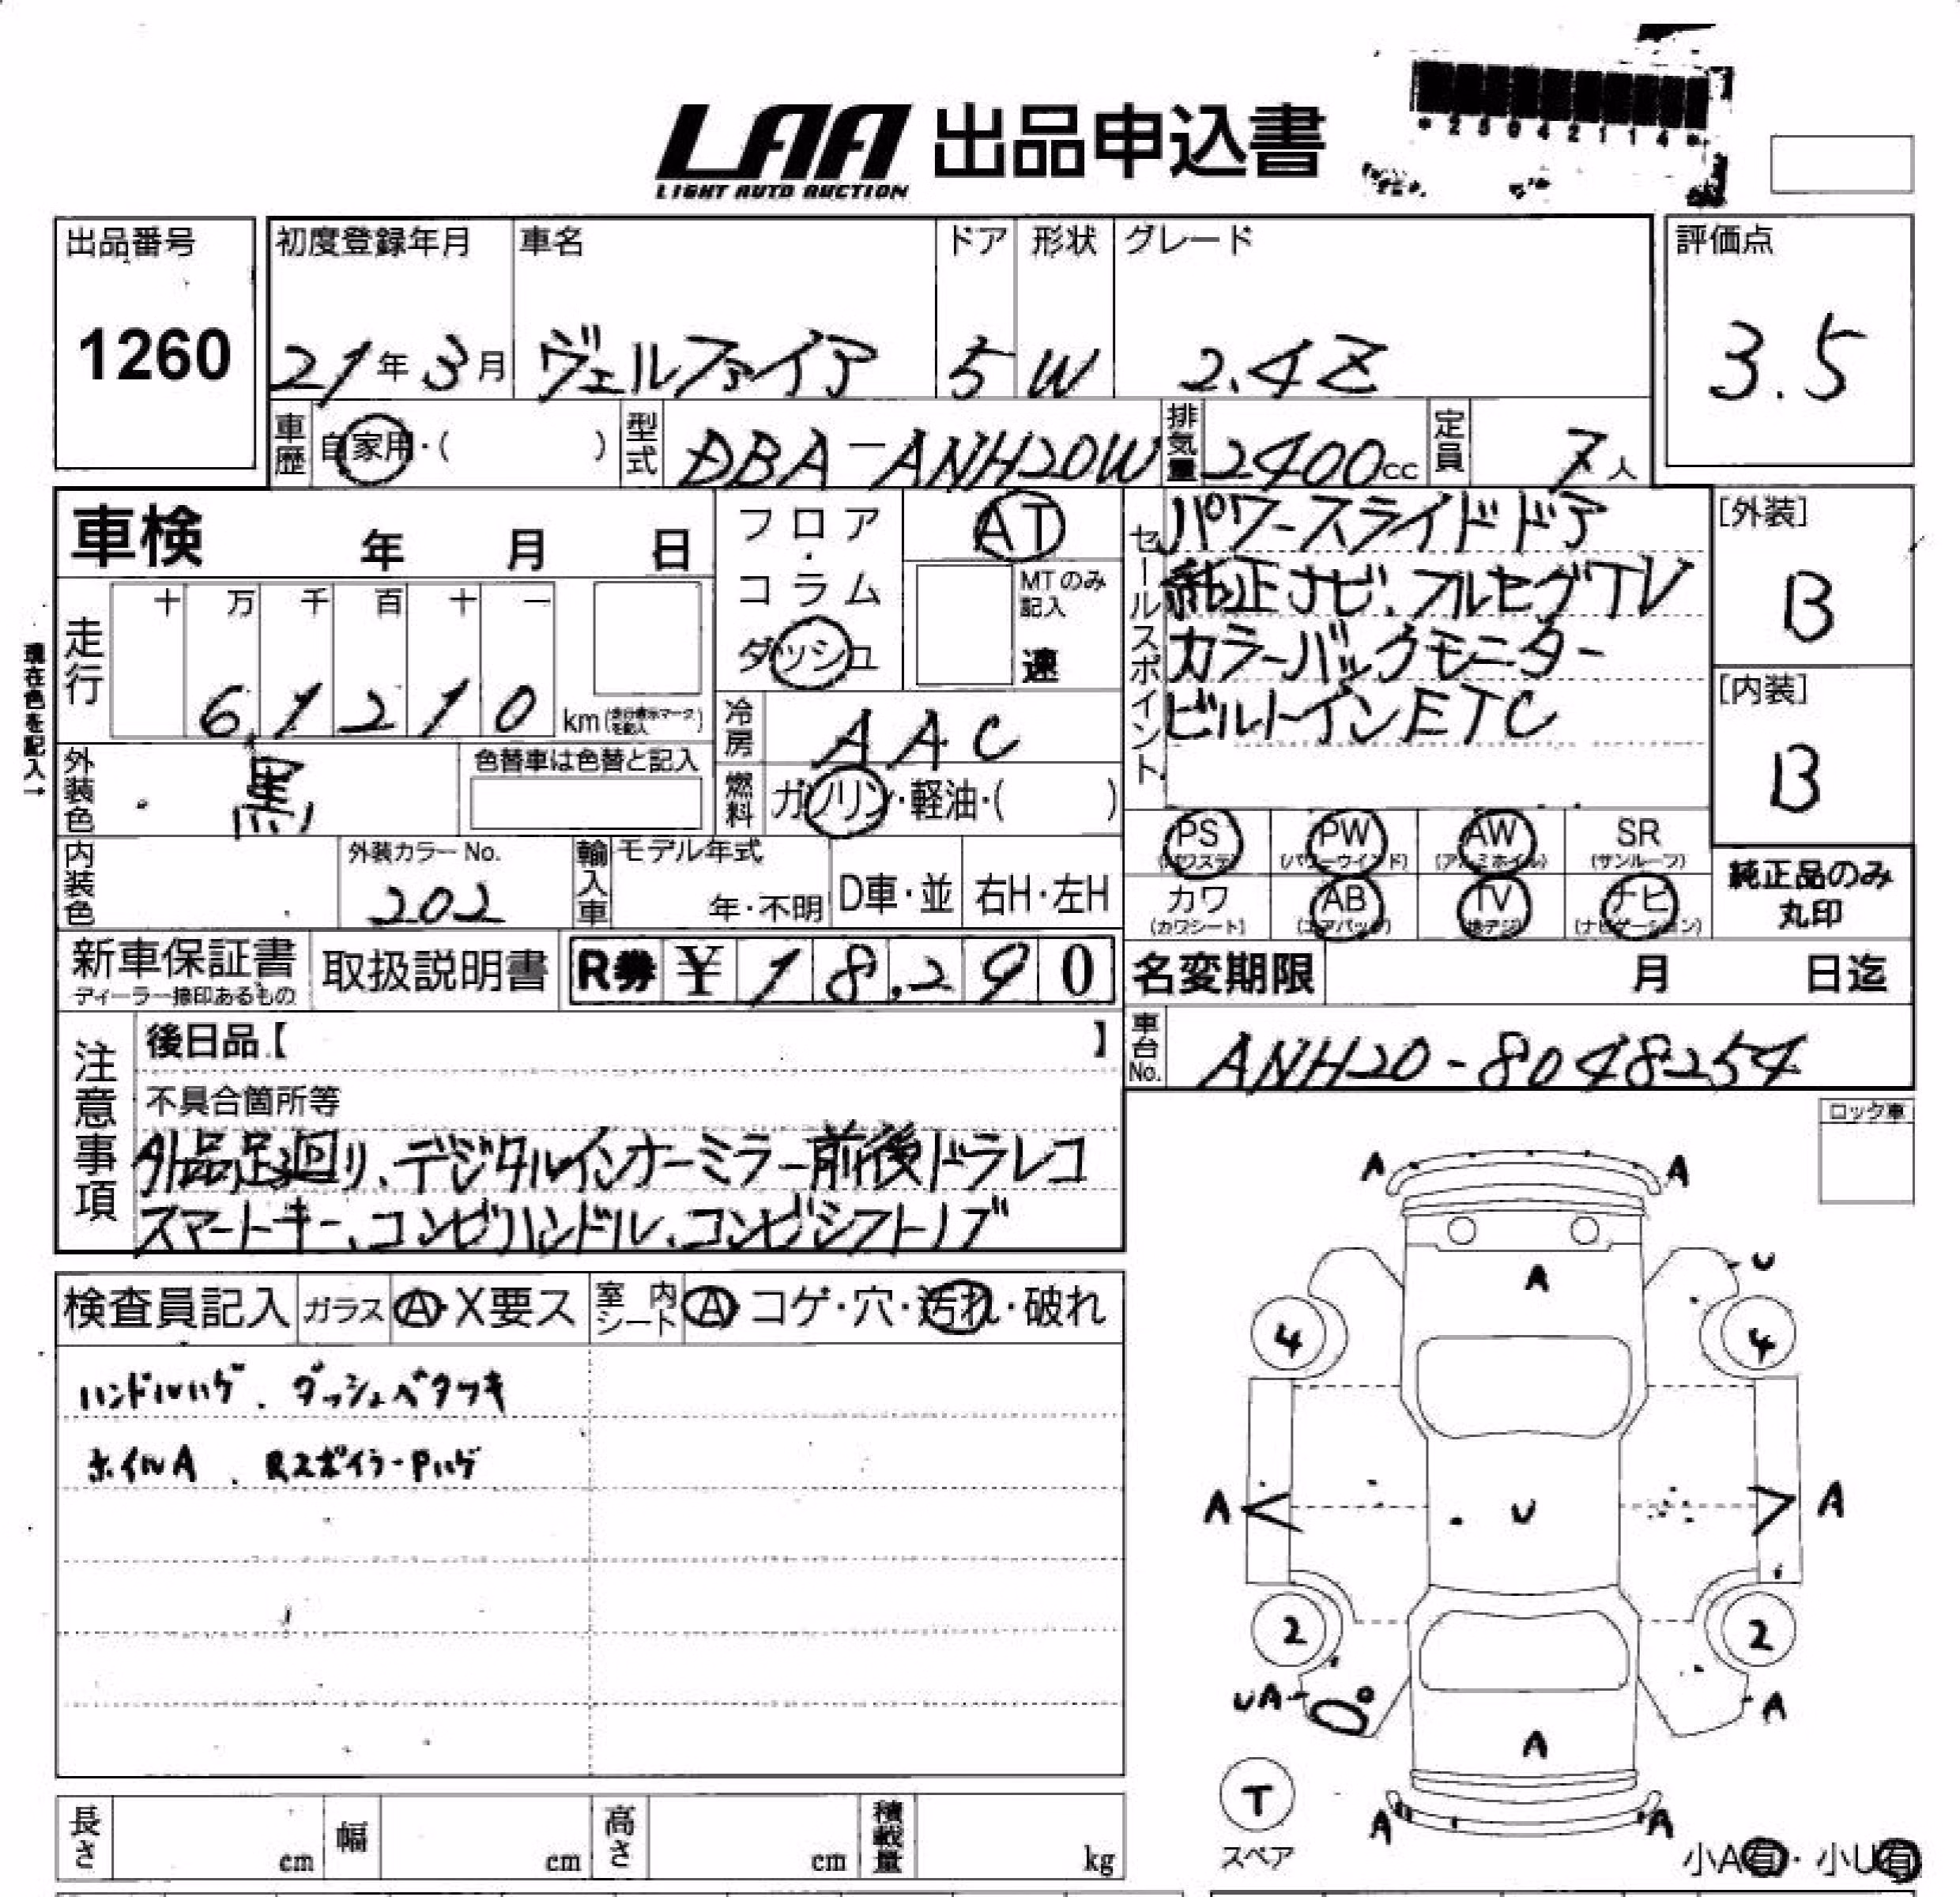 LAA 出品申込書
LIGHT AUTO AUCTION
*25042114*
出品番号
1260
初度登録年月 車名 ドア 形状 グレード
21年 3月 ヴェルファイア 5 W 2.4Z
評価点
3.5
車歴 自家用・( ) 型式 DBA-ANH20W 排気量 2400cc 定員 7人
車検 年 月 日
フロア・コラム
ダッシュ
AT
MTのみ記入
速
セールスポイント
パワースライドドア
純正ナビ、フルセグTV
カラーバックモニター
ビルトインETC
[外装]
B
[内装]
B
現在色を記入→
走行
十 万 千 百 十 一
6,1210 km
外装色 黒
色替車は色替と記入
冷房 AAC
燃料 ガソリン・軽油・( )
PS PW AW SR
(パワステ) (パワーウインド) (アルミホイル) (サンルーフ)
カワ AB TV ナビ
(カワシート) (エアバック) (地デジ) (ナビゲーション)
純正品のみ
丸印
内装色
外装カラーNo.
202
輸入車 モデル年式
年・不明 D車・並 右H・左H
新車保証書
ディーラー捺印あるもの
取扱説明書 R券 ¥ 18,290
名変期限 月 日迄
車台No. ANH20-8048254
注意事項
後日品【 】
不具合箇所等
外品足廻り、デジタルインナーミラー前後ドラレコ
スマートキー、コンビハンドル、コンビシフトノブ
ロック車
検査員記入 ガラス A・X要ス 室内シート A・コゲ・穴・汚れ・破れ
ハンドルハゲ、ダッシュベタツキ
ホイルA、RスポイラーPハゲ
A A
A U
4 4
A U A
2 2
UA A
A
T
スペア
A A
長さ cm 幅 cm 高さ cm 積載量 kg
小A有・小U有